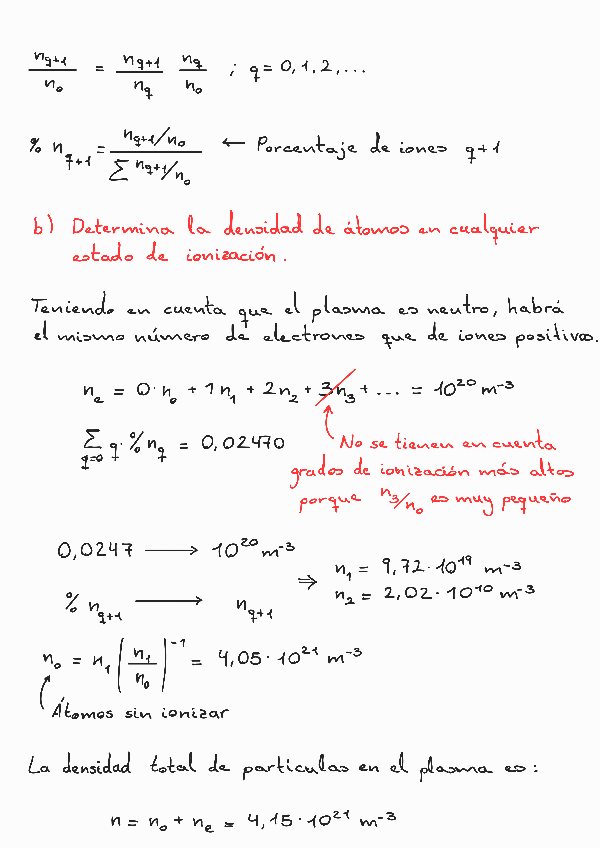 n_{q+1}/n_0 = n_{q+1}/n_q n_q/n_0 ; q = 0, 1, 2, ...
% n_{q+1} = (n_{q+1}/n_0)/(Σ n_{q+1}/n_0) ← Porcentaje de iones q+1
b) Determina la densidad de átomos en cualquier
estado de ionización.
Teniendo en cuenta que el plasma es neutro, habrá
el mismo número de electrones que de iones positivos.
n_e = 0·n_0 + 1n_1 + 2n_2 + 3n_3 + ... = 10^{20} m^{-3}
Σ_{q=0} q·%n_q = 0,02470
No se tienen en cuenta
grados de ionización más altos
porque n_3/n_0 es muy pequeño
0,0247 → 10^{20} m^{-3}
% n_{q+1} → n_{q+1}
⇒ n_1 = 9,72·10^{19} m^{-3}
n_2 = 2,02·10^{10} m^{-3}
n_0 = n_1 (n_1/n_0)^{-1} = 4,05·10^{21} m^{-3}
Átomos sin ionizar
La densidad total de partículas en el plasma es:
n = n_0 + n_e = 4,15·10^{21} m^{-3}